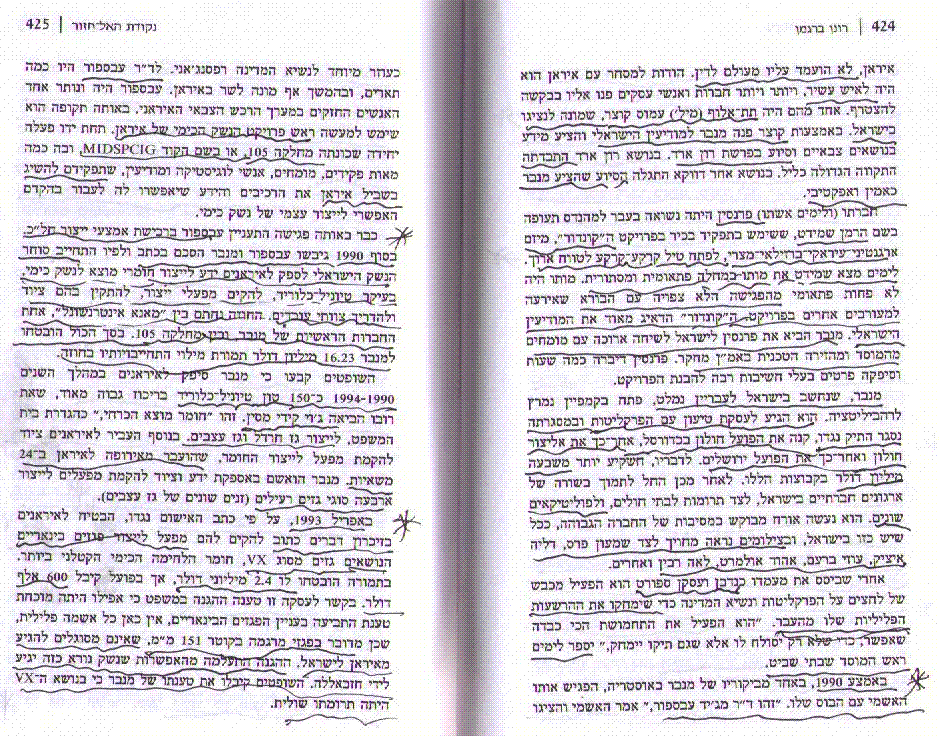 424 | רונן ברגמן
איראן, לא הועמד עליו מעולם לדין. הודות למסחר עם איראן הוא
היה לאיש עשיר, ויותר ויותר חברות ואנשי עסקים פנו אליו בבקשה
להצטרף. אחד מהם היה תת־אלוף (מיל׳) עמוס קוצר, שמונה לנציגו
בישראל. באמצעות קוצר פנה מנבר למודיעין הישראלי והציע מידע
בנושאים צבאיים וסיוע בפרשת רון ארד. בנושא רון ארד התבדתה
התקווה הגדולה כליל. בנושא אחר דווקא התגלה הסיוע שהציע מנבר
כאמין ואפקטיבי.
חברתו (ולימים אשתו) פרנסין היתה נשואה בעבר למהנדס תעופה
בשם הרמן שמידט, ששימש בתפקיד בכיר בפרויקט ה״קונדור״, מיזם
ארגנטיני־עיראקי־ברזילאי־מצרי, לפתח טיל קרקע־קרקע לטווח ארוך.
לימים מצא שמידט את מותו במחלה פתאומית ומסתורית. מותו היה
לא פחות פתאומי מהפגישה הלא צפויה עם הבורא שאירעה
למעורבים אחרים בפרויקט. ה״קונדור״ הדאיג מאוד את המודיעין
הישראלי. מנבר הביא את פרנסין לישראל לשיחה ארוכה עם מומחים
מהמוסד ומהזירה הטכנית באמ״ן מחקר. פרנסין דיברה כמה שעות
וסיפקה פרטים בעלי חשיבות רבה להבנת הפרויקט.
מנבר, שנחשב בישראל לעבריין נמלט, פתח בקמפיין נמרץ
לרהביליטציה. הוא הגיע לעסקת טיעון עם הפרקליטות ובמסגרתה
נסגר התיק נגדו, קנה את הפועל חולון בכדורסל, אחר־כך את אליצור
חולון ואחר־כך את הפועל ירושלים. לדבריו, השקיע יותר משבעה
מיליון דולר בקבוצות הללו. לאחר מכן החל לתמוך בשורה של
ארגונים חברתיים בישראל, לצד תרומות לבתי חולים, ולפוליטיקאים
שונים. הוא נעשה אורח מבוקש במסיבות של החברה הגבוהה, ככל
שיש כזו בישראל, ובצילומים נראה מחויך לצד שמעון פרס, דליה
איציק, עוזי ברעם, אהוד אולמרט, לאה רבין ואחרים.
אחרי שביסס את מעמדו כנדבן ועסקן ספורט הוא הפעיל מכבש
של לחצים על הפרקליטות ונשיא המדינה כדי שימחקו את ההרשעות
הפליליות שלו מהעבר. ״הוא הפעיל את התחמושת הכי כבדה
שאפשר, כדי שלא רק יסולח לו אלא שגם תיקו יימחק,״ יספר לימים
ראש המוסד שבתי שביט.
באמצע 1990, באחד מביקוריו של מנבר באוסטריה, הפגיש אותו
האשמי עם הבוס שלו. ״זהו ד״ר מג׳יד עבספור,״ אמר האשמי והציגו
נקודת האל־חזור | 425
כעוזר מיוחד לנשיא המדינה רפסנג׳אני. לד״ר עבספור היו כמה
תארים, ובהמשך אף מונה לשר באיראן. עבספור היה ונותר אחד
האנשים החזקים במערך הרכש הצבאי האיראני. באותה תקופה הוא
שימש למעשה ראש פרויקט הנשק הכימי של איראן. תחת ידו פעלה
יחידה שכונתה מחלקה 105, או בשם הקוד MIDSPCIG, ובה כמה
מאות פקידים, מומחים, אנשי לוגיסטיקה ומודיעין, שתפקידם להשיג
בשביל איראן את הרכיבים והידע שיאפשרו לה לעבור בהקדם
האפשרי לייצור עצמי של נשק כימי.
כבר באותה פגישה התעניין עבספור ברכישת אמצעי ייצור חל״כ.
בסוף 1990 גיבשו עבספור ומנבר הסכם בכתב ולפיו התחייב סוחר
הנשק הישראלי לספק לאיראנים ידע לייצור חומרי מוצא לנשק כימי,
בעיקר טיוניל־כלוריד, להקים מפעלי ייצור, להתקין בהם ציוד
ולהדריך צוותי עובדים. החוזה נחתם בין ״מאנא אינטרנשונל״, אחת
החברות הראשיות של מנבר, ובין מחלקה 105. בסך הכול הובטחו
למנבר 16.23 מיליון דולר תמורת מילוי התחייבויותיו בחוזה.
השופטים קבעו כי מנבר סיפק לאיראנים במהלך השנים
1990–1994 כ־150 טון טיוניל־כלוריד בריכוז גבוה מאוד, שאת
רובו הביאה ג׳וי קידי מסין. זהו ״חומר מוצא הכרחי,״ כהגדרת בית
המשפט, לייצור גז חרדל וגז עצבים. בנוסף העביר לאיראנים ציוד
להקמת מפעל לייצור החומר, שהועבר מאירופה לאיראן ב־24
משאיות. מנבר הואשם באספקת ידע וציוד להקמת מפעלים לייצור
ארבעה סוגי גזים רעילים (זנים שונים של גז עצבים).
באפריל 1993, על פי כתב האישום נגדו, הבטיח לאיראנים
בזיכרון דברים כתוב להקים להם מפעל לייצור פגזים בינאריים
הנושאים גזים מסוג VX, חומר הלחימה הכימי הקטלני ביותר.
בתמורה הובטחו לו 2.4 מיליוני דולר, אך בפועל קיבל 600 אלף
דולר. בקשר לעסקה זו טענה ההגנה במשפט כי אפילו היתה מוכחת
טענת התביעה בעניין הפגזים הבינאריים, אין כאן כל אשמה פלילית,
שכן מדובר בפגזי מרגמה בקוטר 151 מ״מ, שאינם מסוגלים להגיע
מאיראן לישראל. ההגנה התעלמה מהאפשרות שנשק נורא כזה יגיע
לידי חזבאללה. השופטים קיבלו את טענתו של מנבר כי בנושא ה־VX
היתה תרומתו שולית.